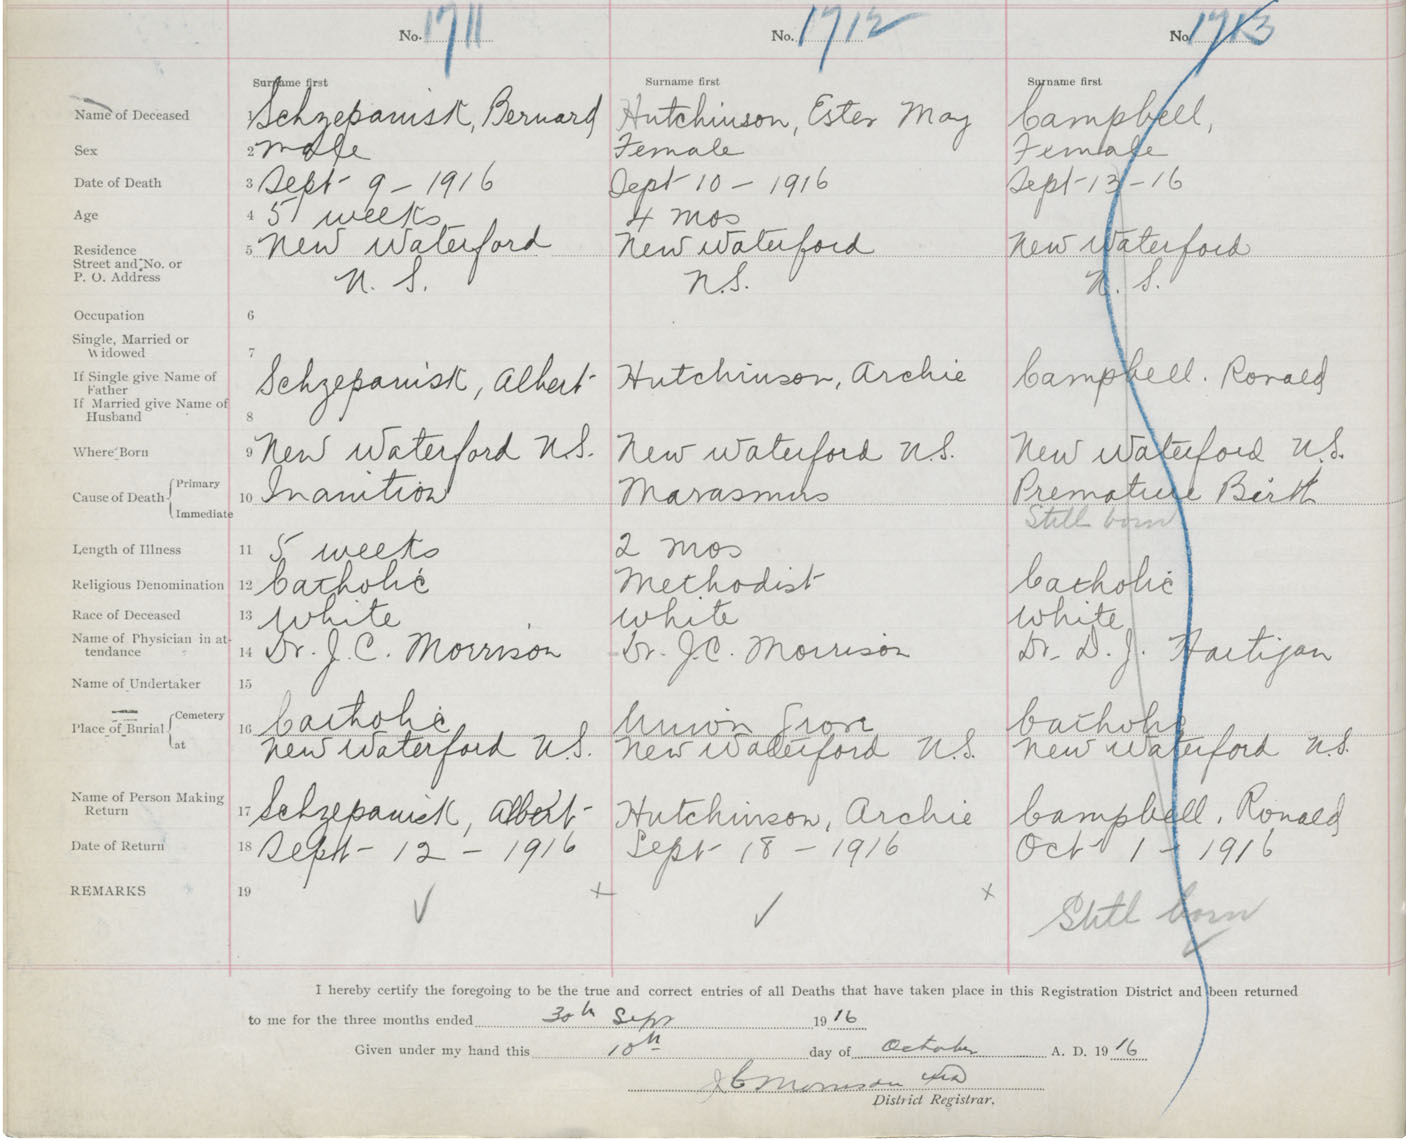 No. 1711 No. 1712 No. 1713
Surname first Surname first Surname first
Name of Deceased 1 Schzepanisk, Bernard Hutchinson, Ester May Campbell,
Sex 2 Male Female Female
Date of Death 3 Sept 9 - 1916 Sept 10 - 1916 Sept 13 - 16
Age 4 5 weeks 4 mos
Residence 5 New Waterford New Waterford New Waterford
Street and No. or
P. O. Address N. S. N.S. N. S.
Occupation 6
Single, Married or
Widowed 7
If Single give Name of
Father Schzepanisk, Albert Hutchinson, Archie Campbell. Ronald
If Married give Name of
Husband 8
Where Born 9 New Waterford N.S. New Waterford N.S. New Waterford N.S.
Primary
Cause of Death 10 Inanition Marasmus Premature Birth
Immediate Still born
Length of Illness 11 5 weeks 2 mos
Religious Denomination 12 Catholic Methodist Catholic
Race of Deceased 13 White White White
Name of Physician in at-
tendance 14 Dr. J. C. Morrison Dr. J.C. Morrison Dr. D. J. Hartigan
Name of Undertaker 15
Cemetery
Place of Burial 16 Catholic Union Grove Catholic
at New Waterford N.S. New Waterford N.S. New Waterford N.S.
Name of Person Making
Return 17 Schzepanisk, Albert Hutchinson, Archie Campbell, Ronald
Date of Return 18 Sept - 12 - 1916 Sept 18 - 1916 Oct 1 - 1916
REMARKS 19 ✓ x ✓ x Still born ✓
I hereby certify the foregoing to be the true and correct entries of all Deaths that have taken place in this Registration District and been returned
to me for the three months ended 30th Sept 1916
Given under my hand this 10th day of October A. D. 1916
J C Morrison
District Registrar.